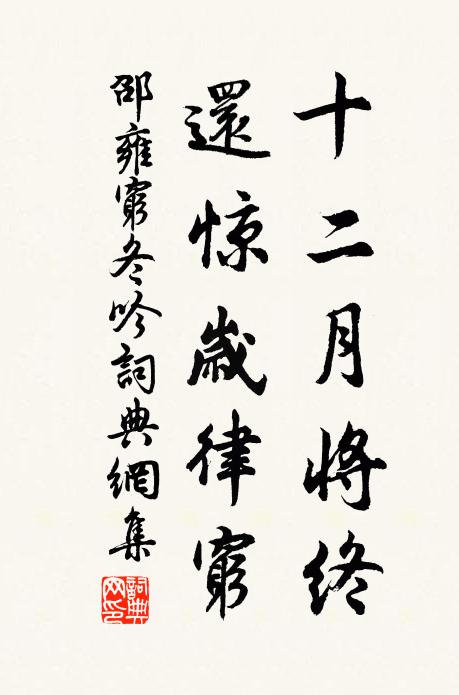 十二月將終
還惊歲律窮
邵雍窮冬吟詞典網集
詞典网印